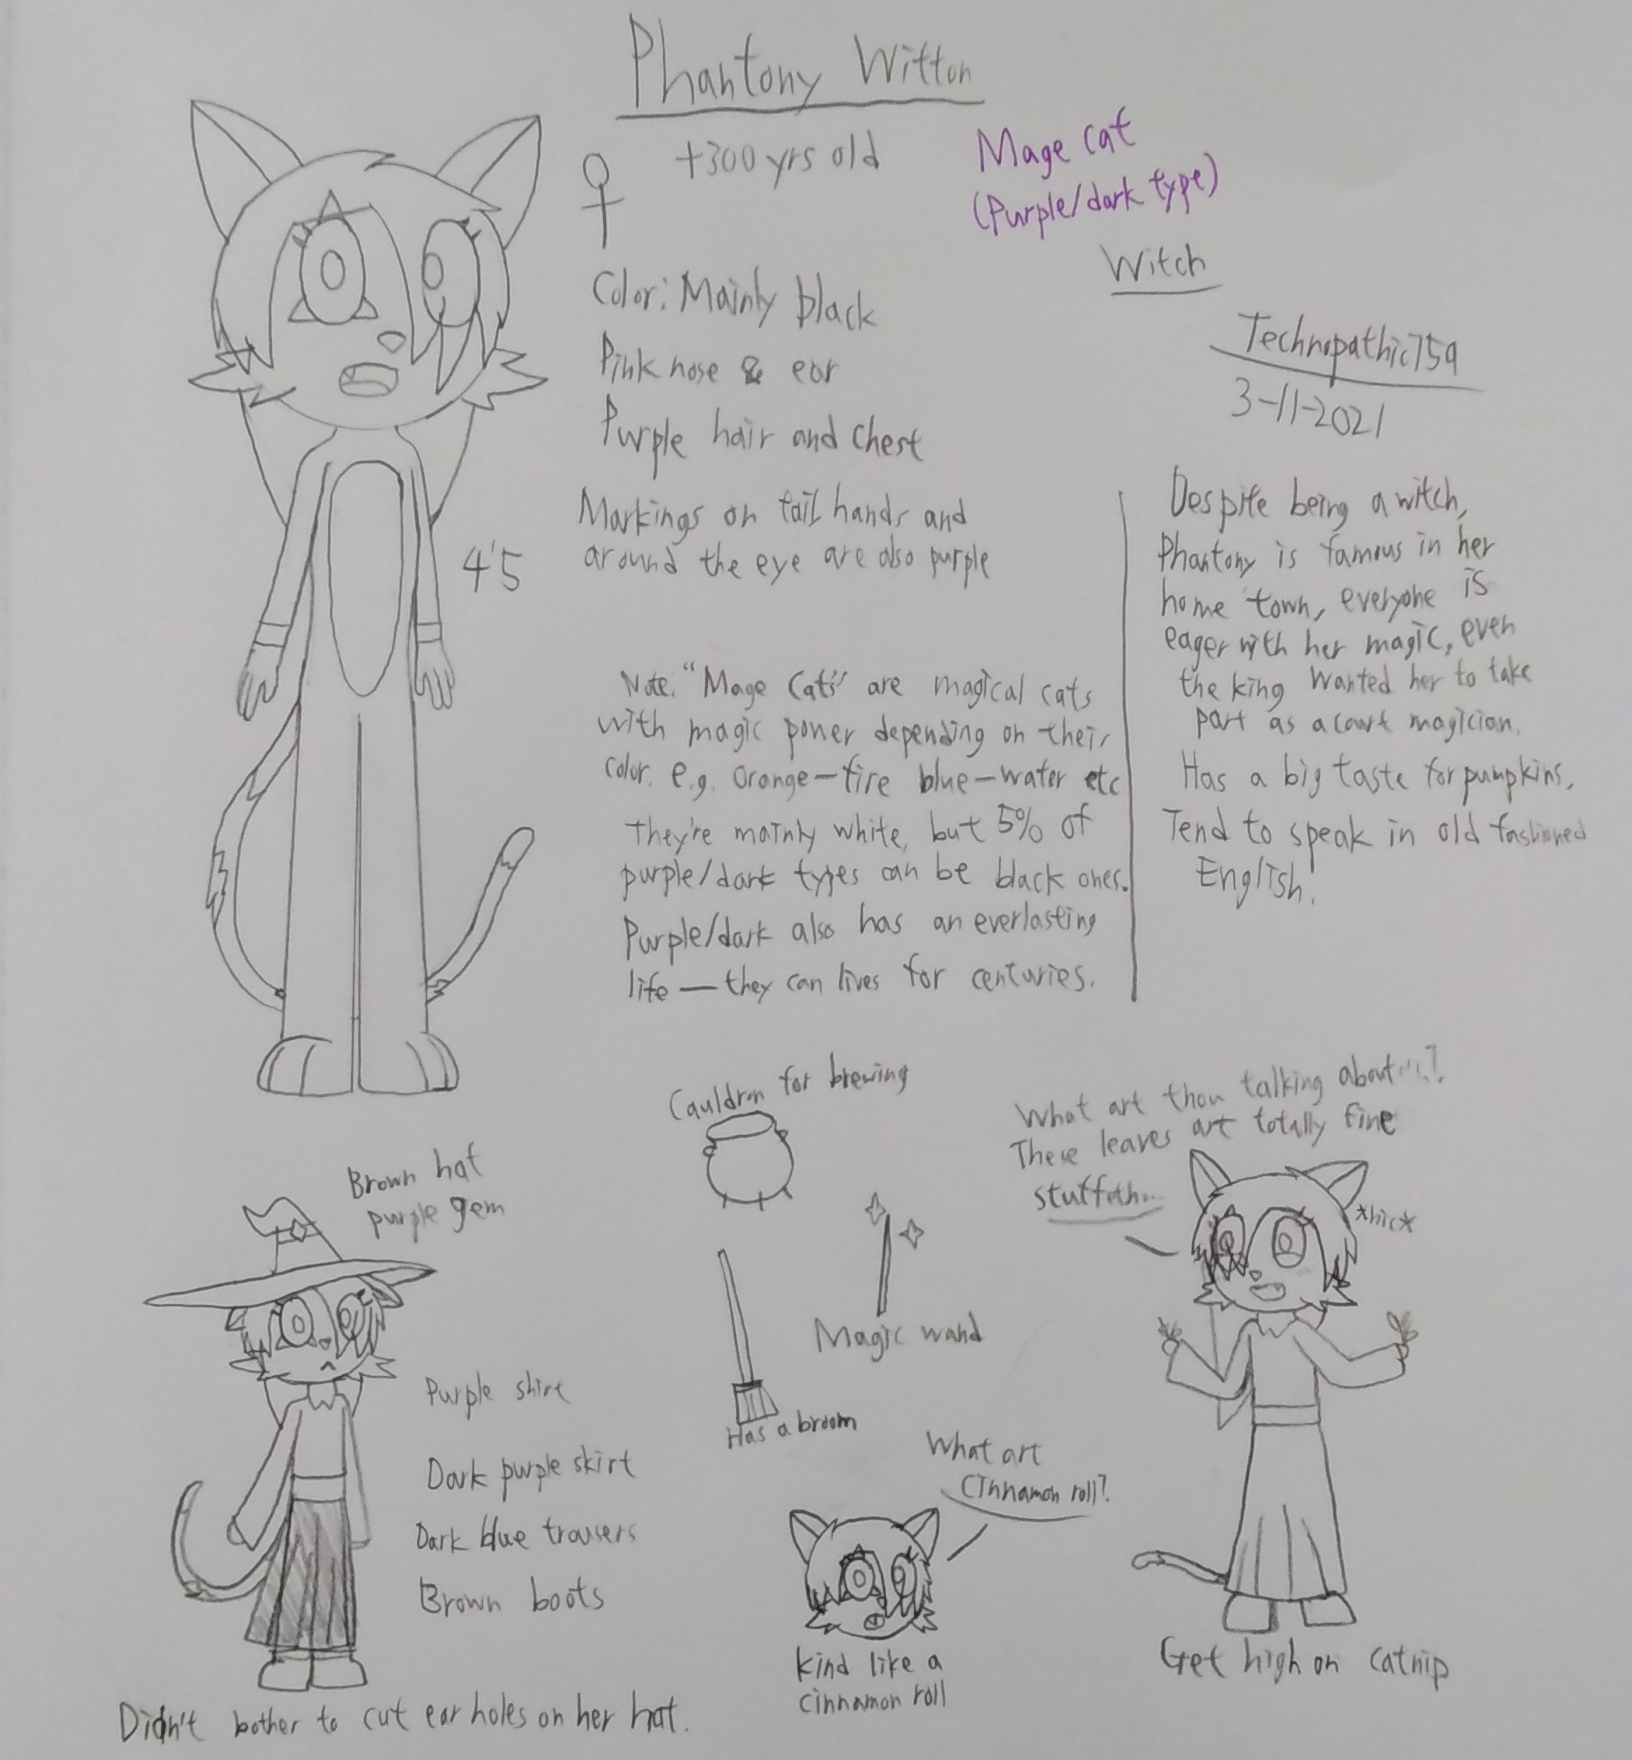 Phantony Witton
+300 yrs old
Mage cat
(Purple/dark type)
Witch
Technopathic759
3-11-2021
Color: Mainly black
Pink nose & ear
Purple hair and chest
Markings on tail hands and
around the eye are also purple
4'5
Note: "Mage Cats" are magical cats
with magic power depending on their
color. e.g. orange—fire blue—water etc
They're mainly white, but 5% of
purple/dark types can be black ones.
Purple/dark also has an everlasting
life — they can lives for centuries.
Despite being a witch,
Phantony is famous in her
home town, everyone is
eager with her magic, even
the king wanted her to take
part as a court magician.
Has a big taste for pumpkins.
Tend to speak in old fashioned
English.
Cauldron for brewing
Magic wand
Has a broom
What art thou talking about...?
These leaves art totally fine
stuffeth...
*hic*
Get high on catnip
Brown hat
purple gem
Purple shirt
Dark purple skirt
Dark blue trousers
Brown boots
Didn't bother to cut ear holes on her hat.
What art
cinnamon roll?
kind like a
cinnamon roll